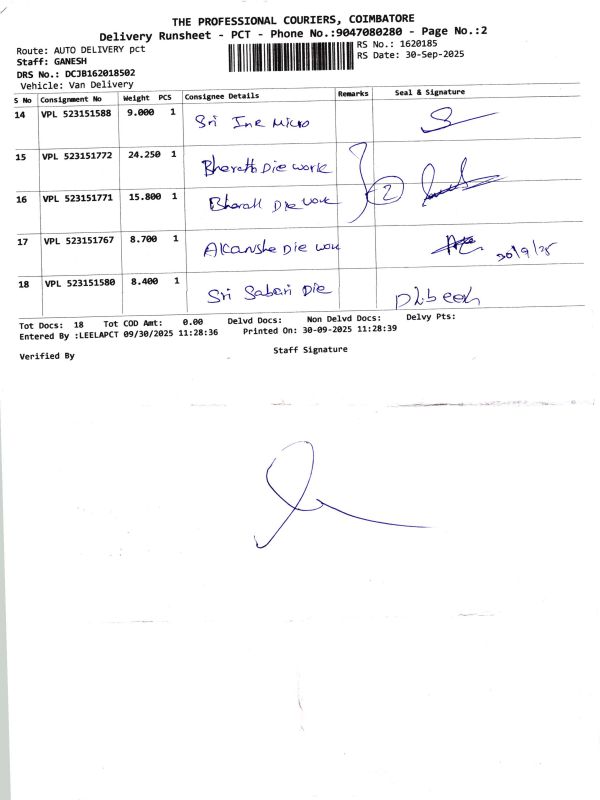 THE PROFESSIONAL COURIERS, COIMBATORE
Delivery Runsheet - PCT - Phone No.:9047080280 - Page No.:2
Route: AUTO DELIVERY pct
RS No.: 1620185
Staff: GANESH
RS Date: 30-Sep-2025
DRS No.: DCJB162018502
Vehicle: Van Delivery
S No Consignment No Weight PCS Consignee Details Remarks Seal & Signature
14 VPL 523151588 9.000 1 Sri Ine Micro
15 VPL 523151772 24.250 1 Bharath Die work
2
16 VPL 523151771 15.800 1 Bharath Die work
17 VPL 523151767 8.700 1 Akanshe Die work 30/9/25
18 VPL 523151580 8.400 1 Sri Sabari Die
Tot Docs: 18 Tot COD Amt: 0.00 Delvd Docs: Non Delvd Docs: Delvy Pts:
Entered By :LEELAPCT 09/30/2025 11:28:36 Printed On: 30-09-2025 11:28:39
Verified By Staff Signature